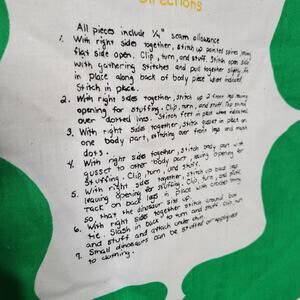 Directions
All pieces include 1/4" seam allowance
1. With right sides together, stitch up pointed spines leaving
flat side open. Clip, turn, and stuff. Stitch open side
with gathering stitches and pull together slightly. Pin
in place along back of body piece where indicated.
Stitch in place.
2. With right sides together, stitch up 2 front legs leaving
opening for stuffing. Clip, turn, and stuff.
over dotted lines. Stitch feet in place where indicated.
3. With right sides together, stitch gusset in place on
one body part, stitching over front legs and match
dots.
4. With right sides together, stitch body part with
gusset to other body part, leaving opening for
stuffing. Clip, turn, and stuff.
5. With right sides together, stitch up back legs
leaving opening for stuffing. Clip, turn, and stuff.
Tack on back legs in place with
so that the dinosaur sits up.
6. With right sides together stitch around bow
tie. Slash in back to turn and stuff. Clip, turn
and stuff and attach under chin.
7. Small dinosaurs can be stuffed or appliqued
to clothing.